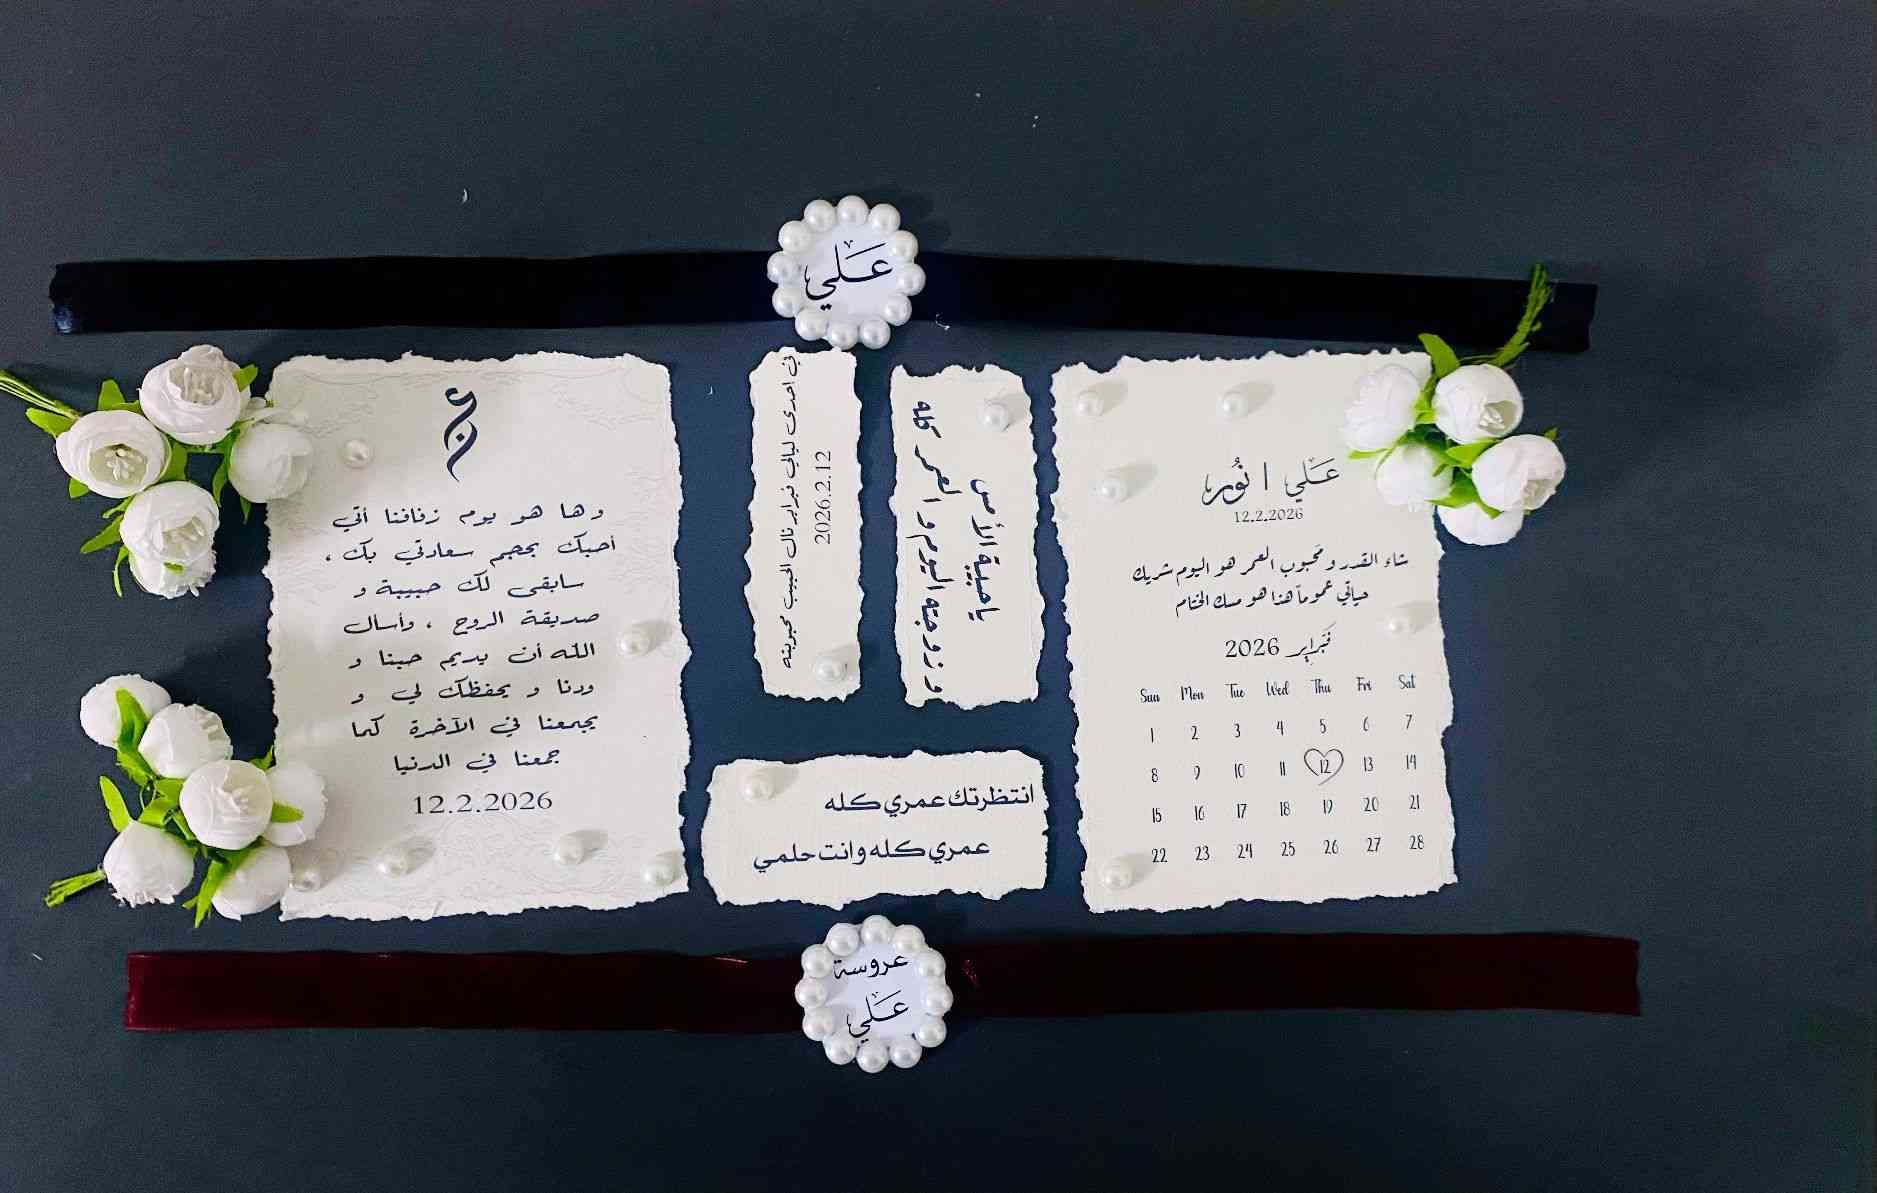 عَلي
عن
وها هو يوم زفافنا أتي
أحبك بحجم سعادتي بك ،
سابقى لك حبيبة و
صديقة الروح ، وأسال
الله أن يديم حبنا و
ودنا و يحفظك لي و
يجمعنا في الآخرة كما
جمعنا في الدنيا
12.2.2026
في احدى ليالي فبراير نال الحبيب محبوبته
2026.2.12
ياحبيبة الأمس
و زوجته اليوم و العمر كله
انتظرتك عمري كله
عمري كله وانت حلمي
عَلي | نُور
12.2.2026
شاء القدر و محبوب العمر هو اليوم شريك
حياتي عموماً هذا هو مسك الختام
فبراير 2026
Sun Mon Tue Wed Thu Fri Sat
1 2 3 4 5 6 7
8 9 10 11 12 13 14
15 16 17 18 19 20 21
22 23 24 25 26 27 28
عروسة
عَلي